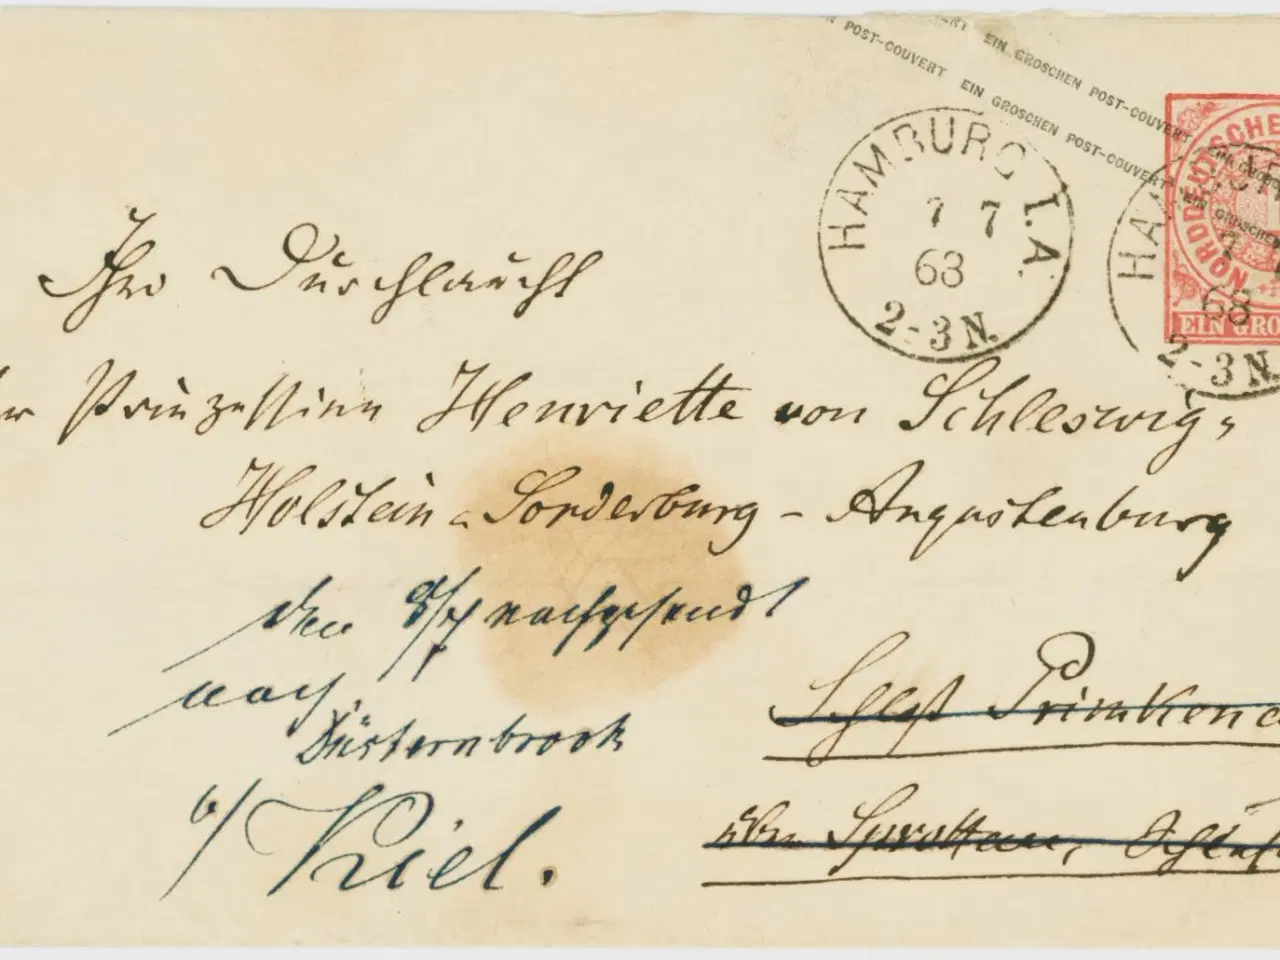 POST-COUVERT EIN GROSCHEN POST-COUVERT
EIN GROSCHEN POST-COUVERT EIN GROSCHEN
HAMBURG I.A.
7 7
68
2-3 N.
NORDDEUTSCHE
EIN GRO
HA
7
68
2-3 N.
Ihro Durchlaucht
Prinzessinn Henriette von Schleswig-
Holstein-Sonderburg-Augustenburg
den 8/7 nachgesandt
nach
Düsternbrook
b/ Kiel.
Schloß Primkena
über Sprottau, Schles